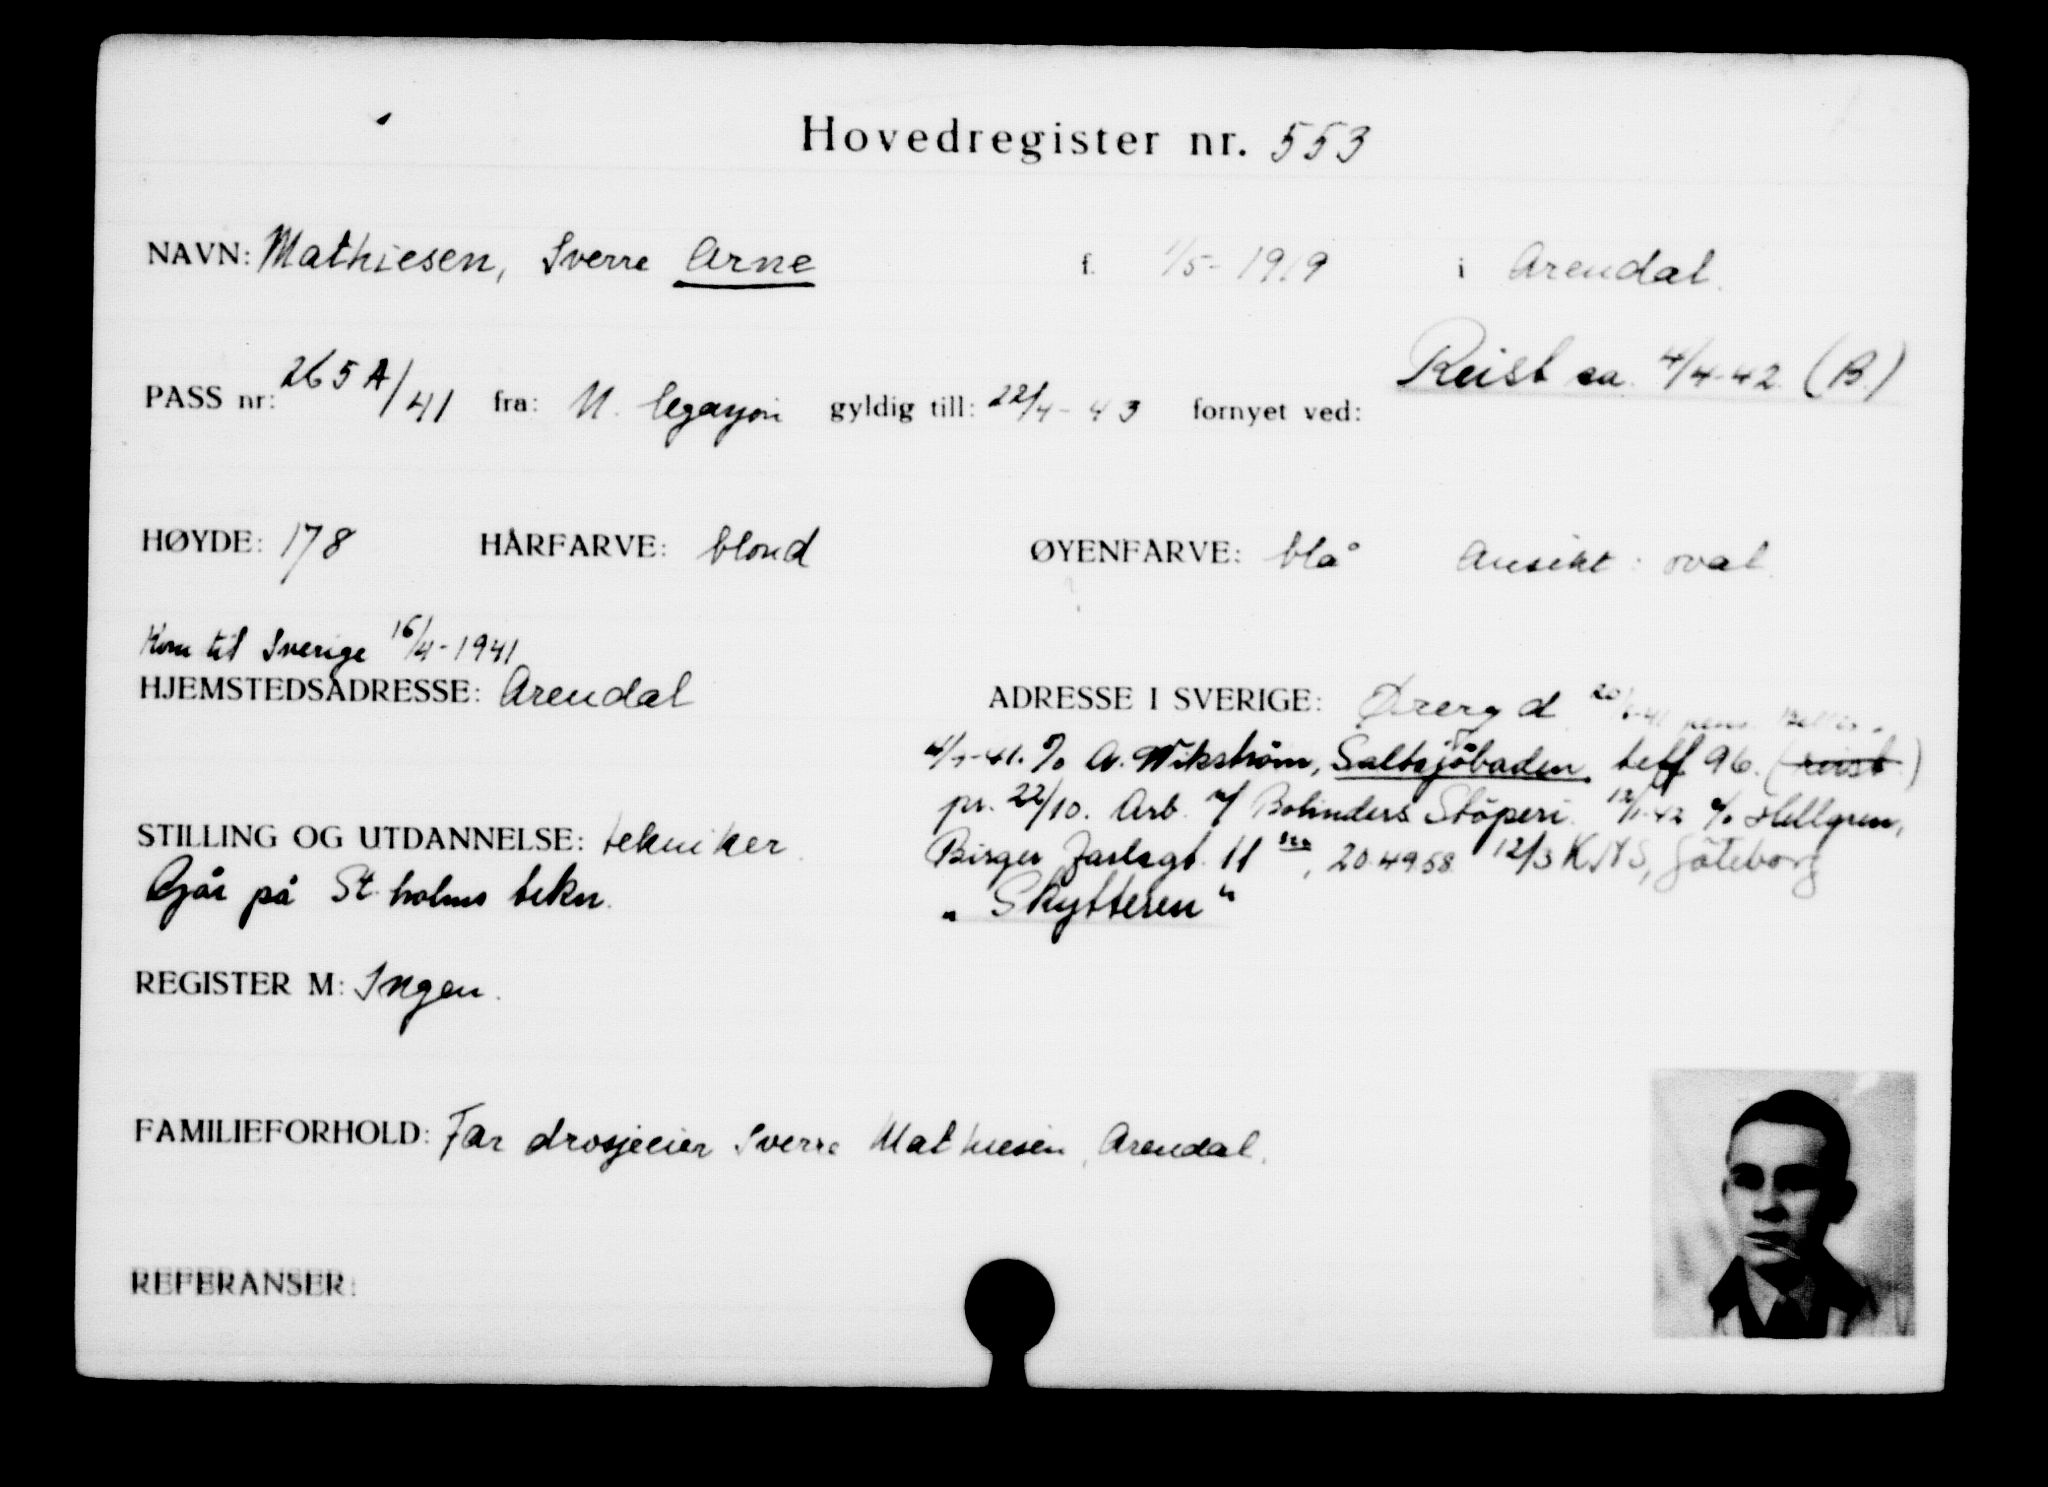 Hovedregister nr. 553
NAVN: Mathiesen, Sverre Arne f. 1/5-1919 i Arendal.
Reist ca. 4/4-42 (B.)
PASS nr: 265A/41 fra: N. legasjon gyldig till: 22/4-43 fornyet ved:
HØYDE: 178 HÅRFARVE: blond ØYENFARVE: blå Ansikt: oval.
Kom til Sverige 16/4-1941
HJEMSTEDSADRESSE: Arendal ADRESSE I SVERIGE: Øreryd
c/o A. Wikström, Saltsjöbaden telf 96. (reist.)
pr. 22/10. Arb. v/ Bolinders Stöperi. 12/1-42 c/o Hellgren,
STILLING OG UTDANNELSE: tekniker. Birger Jarlsgt. 11, 204958. 12/3 KNS, Göteborg
Går på St.holms tekn. "Skytteren"
REGISTER M: Ingen.
FAMILIEFORHOLD: Far drosjeeier Sverre Mathiesen, Arendal.
REFERANSER: